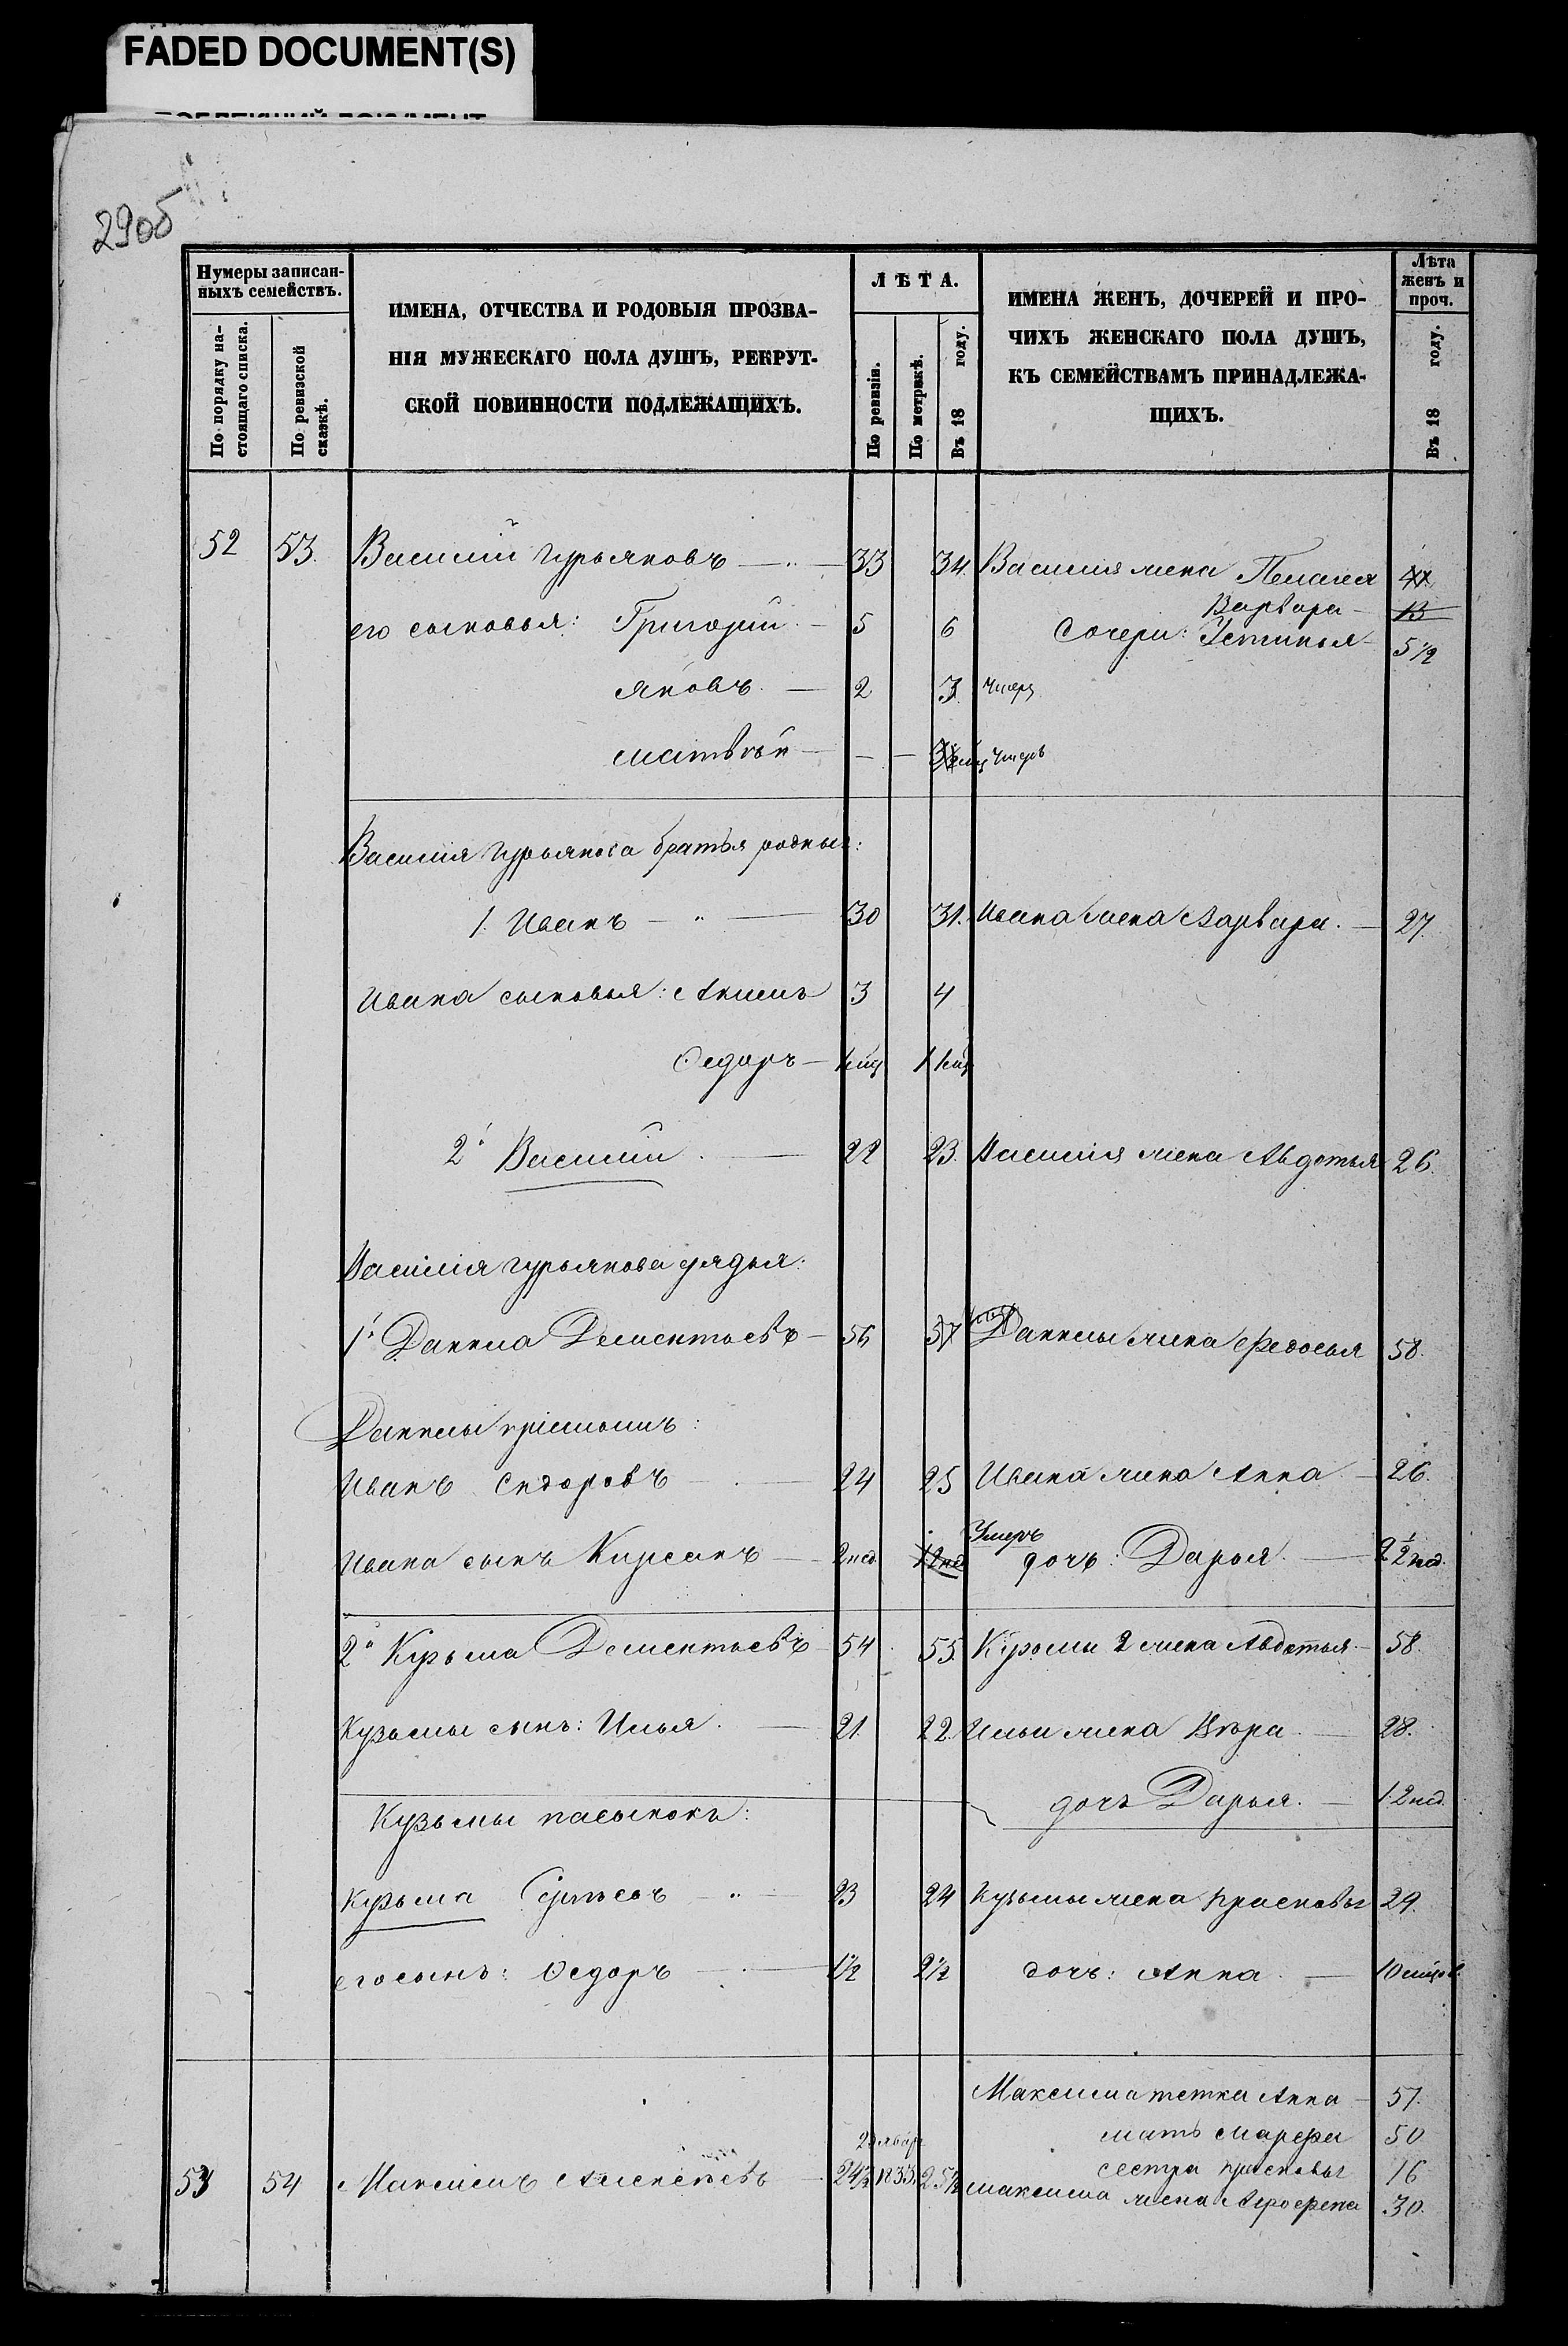 FADED DOCUMENT(S)
29об
Нумеры записан-
ныхъ семействъ.
По порядку на-
стоящаго списка.
По ревизской
сказкѣ.
ИМЕНА, ОТЧЕСТВА И РОДОВЫЯ ПРОЗВА-
НІЯ МУЖЕСКАГО ПОЛА ДУШЪ, РЕКРУТ-
СКОЙ ПОВИННОСТИ ПОДЛЕЖАЩИХЪ.
ЛѢТА.
По ревизіи.
По метрикѣ.
Въ 18 году.
ИМЕНА ЖЕНЪ, ДОЧЕРЕЙ И ПРО-
ЧИХЪ ЖЕНСКАГО ПОЛА ДУШЪ,
КЪ СЕМЕЙСТВАМЪ ПРИНАДЛЕЖА-
ЩИХЪ.
Лѣта
женъ и
проч.
Въ 18 году.
52 53. Василій Гурьяновъ — 33 34. Василія жена Пелагея
Варвара — 13
его сыновья: Григорій — 5 6 дочери: Устинья — 5 1/2
Яковъ — 2 3. умеръ
Матвѣй — — — умеръ
Василія Гурьянова братья родные:
1. Иванъ — 30 31. Ивана жена Варвара. — 27.
Ивана сыновья: Акимъ 3 4
Ѳедоръ —
2й Василій — 22 23. Василія жена Авдотья 26.
Василія Гурьянова дядья:
1й Данила Дементьевъ — 56 57 Данилы жена Федосья 58.
Данилы пріемышъ:
Иванъ Сидоровъ — 24 25 Ивана жена Анна — 26.
Умеръ
Ивана сынъ Кирсанъ — 2 нед. 1 2 нед дочь: Дарья. — 2 1/2 нед.
2й Кузьма Дементьевъ 54 55. Кузьмы 2 жена Авдотья — 58.
Кузьмы сынъ: Илья. — 21. 22. Ильи жена Вѣра — 28.
дочь Дарья. — 1 2 нед.
Кузьмы пасынокъ:
Кузьма 23 24 Кузьмы жена Прасковья 29.
его сынъ: Ѳедоръ — 1 1/2 2 1/2 дочь: Анна. — 10 мцов.
Максима тетка Анна — 57.
мать Марфа 50
сестра Прасковья 16
53 54 Максимъ Алексѣевъ 24 1/2 1833. 25 1/2 Максима жена Агрофена 30.